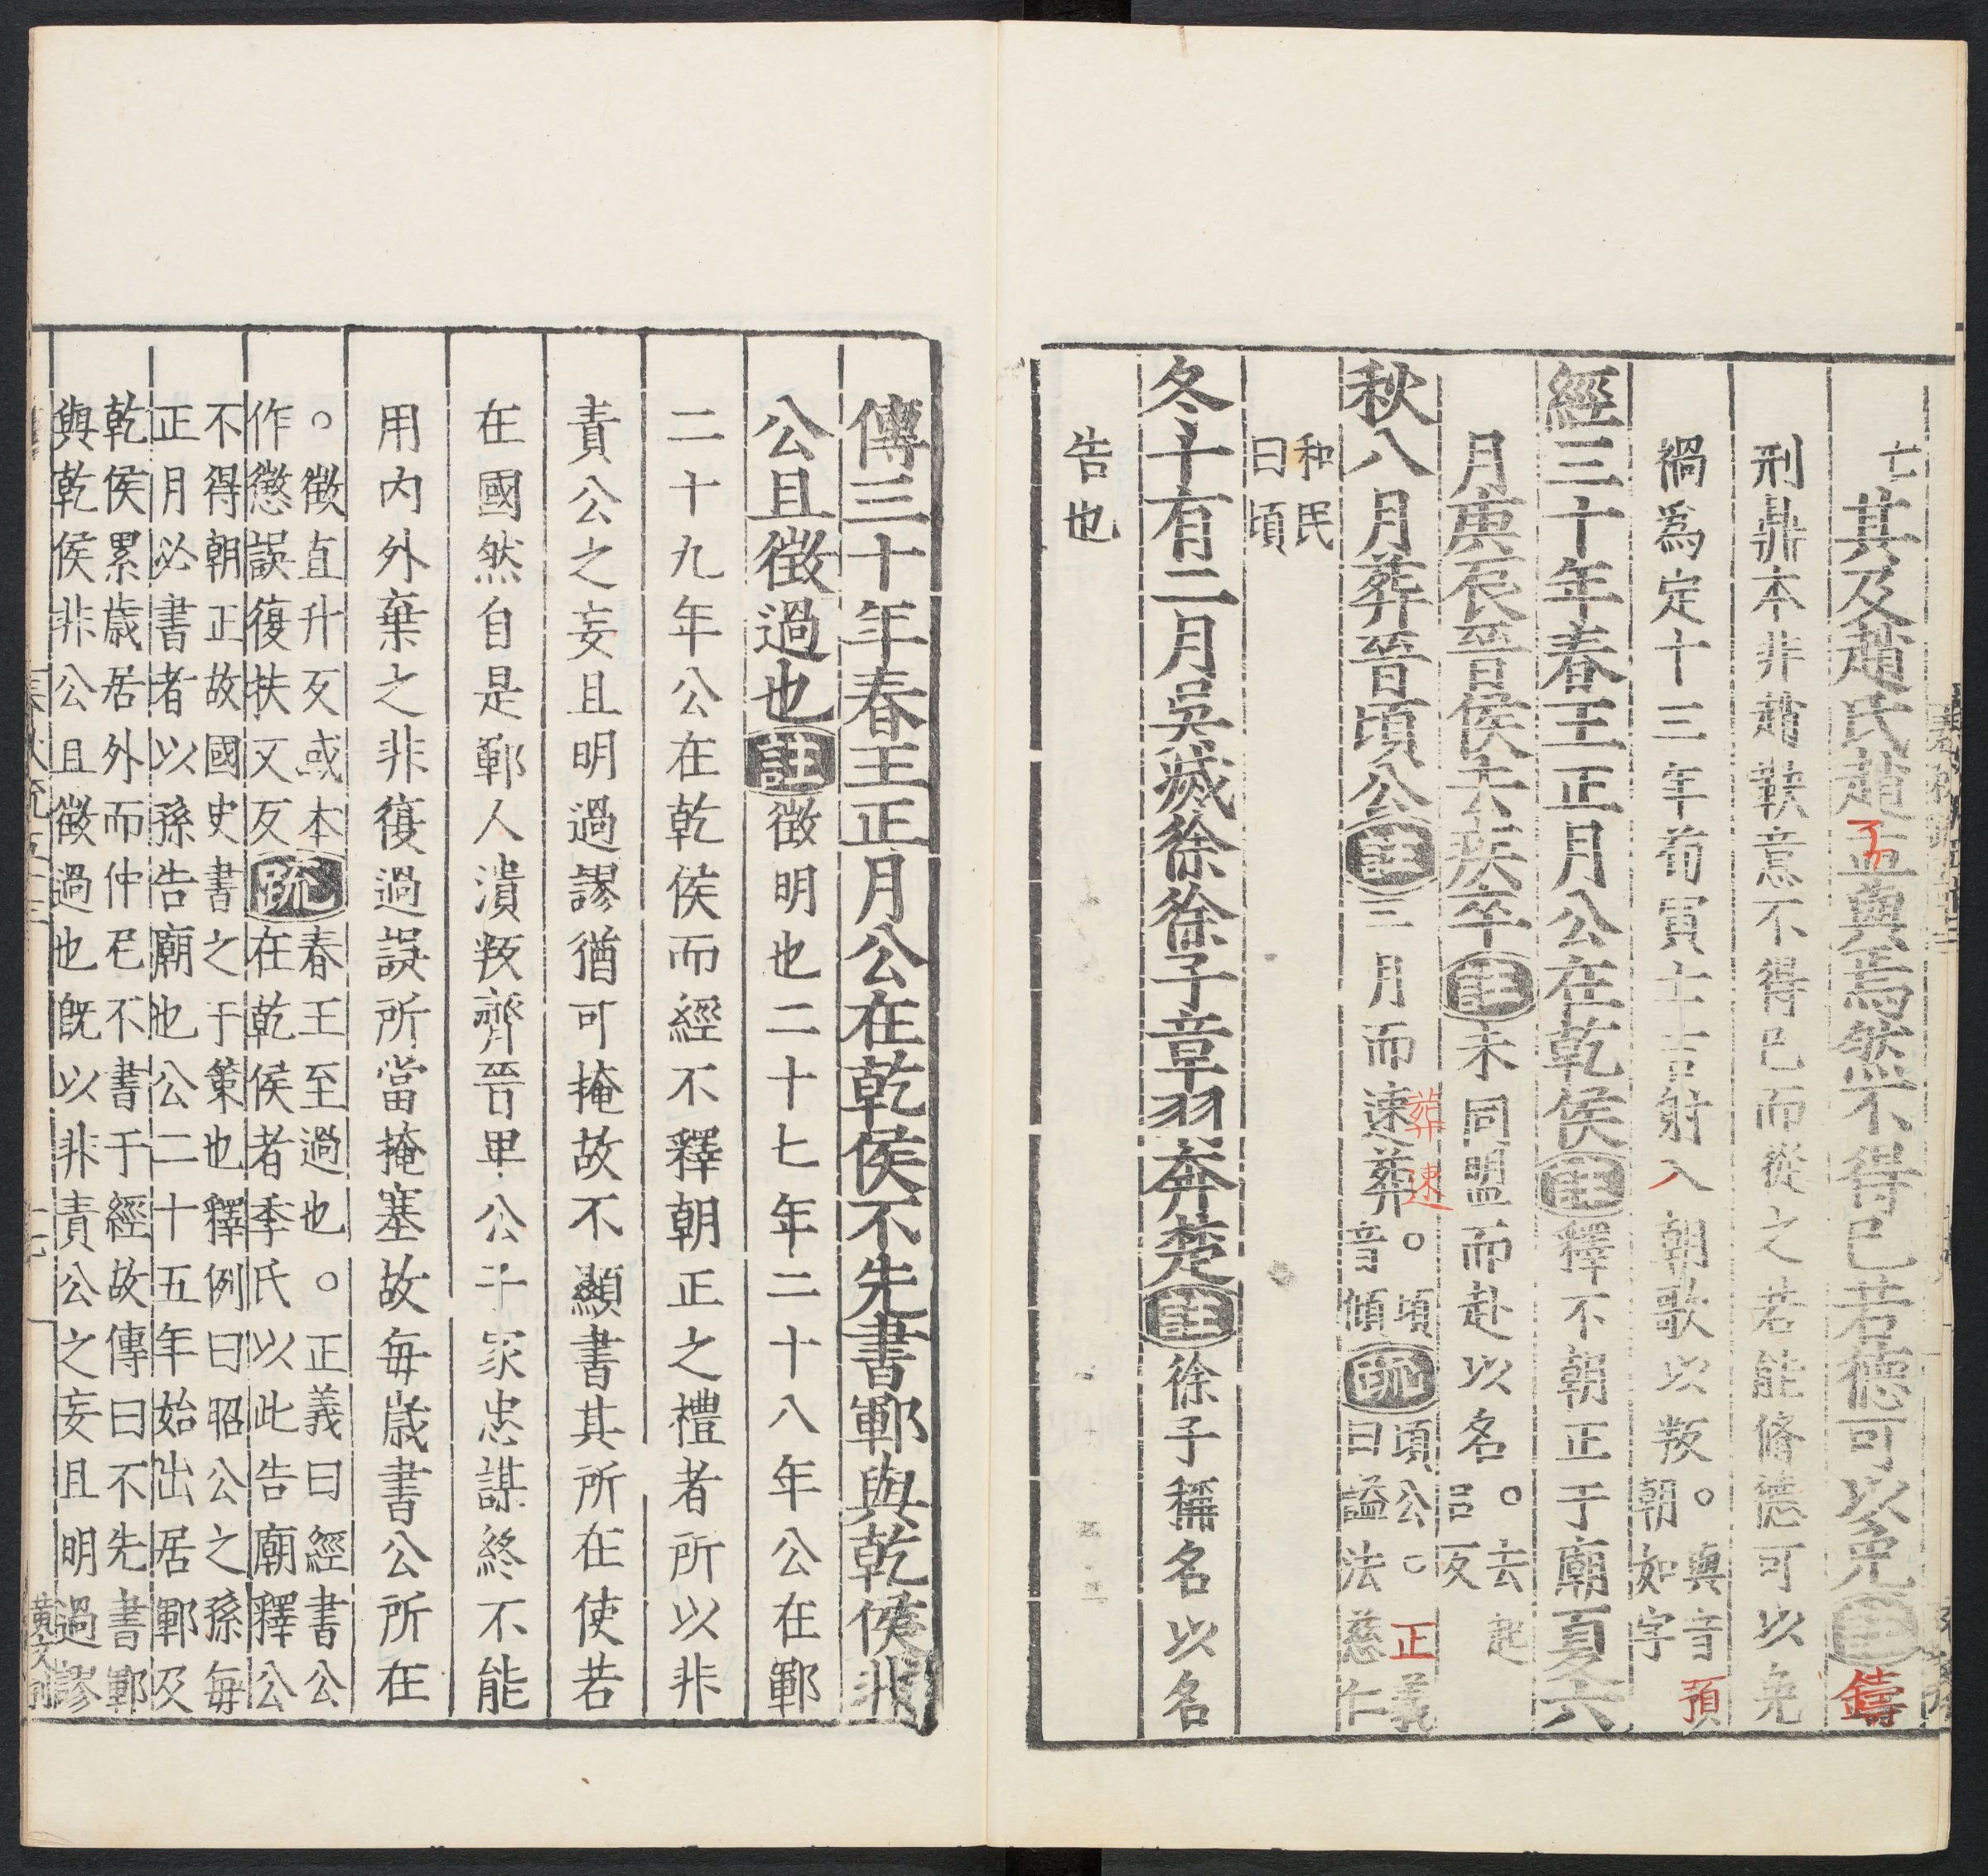 亡其及趙氏趙孟與焉然不得已若德可以免註鑄
刑鼎本非趙鞅意不得已而從之若能脩德可以免
禍為定十三年荀寅士吉射入朝歌以叛。與音預
朝如字
經三十年春王正月公在乾侯註釋不朝正于廟夏六
月庚辰晉侯去疾卒註未同盟而赴以名。去起
呂反
秋八月葬晉頃公註三月而葬速。頃
音傾疏頃公。正義
曰謚法慈仁
和民
曰頃
冬十有二月吳滅徐徐子章羽奔楚註徐子稱名以名
告也
傳三十年春王正月公在乾侯不先書鄆與乾侯非
公且徵過也註徵明也二十七年二十八年公在鄆
二十九年公在乾侯而經不釋朝正之禮者所以非
責公之妄且明過謬猶可掩故不顯書其所在使若
在國然自是鄆人潰叛齊晉卑公子家忠謀終不能
用內外棄之非復過誤所當掩塞故每歲書公所在
。徵直升反或本
作懲誤復扶又反疏春王至過也。正義曰經書公
在乾侯者季氏以此告廟釋公
不得朝正故國史書之于策也釋例曰昭公之孫每
正月必書者以孫告廟也公二十五年始出居鄆及
乾侯累歲居外而仲尼不書于經故傳曰不先書鄆
與乾侯非公且徵過也既以非責公之妄且明過謬